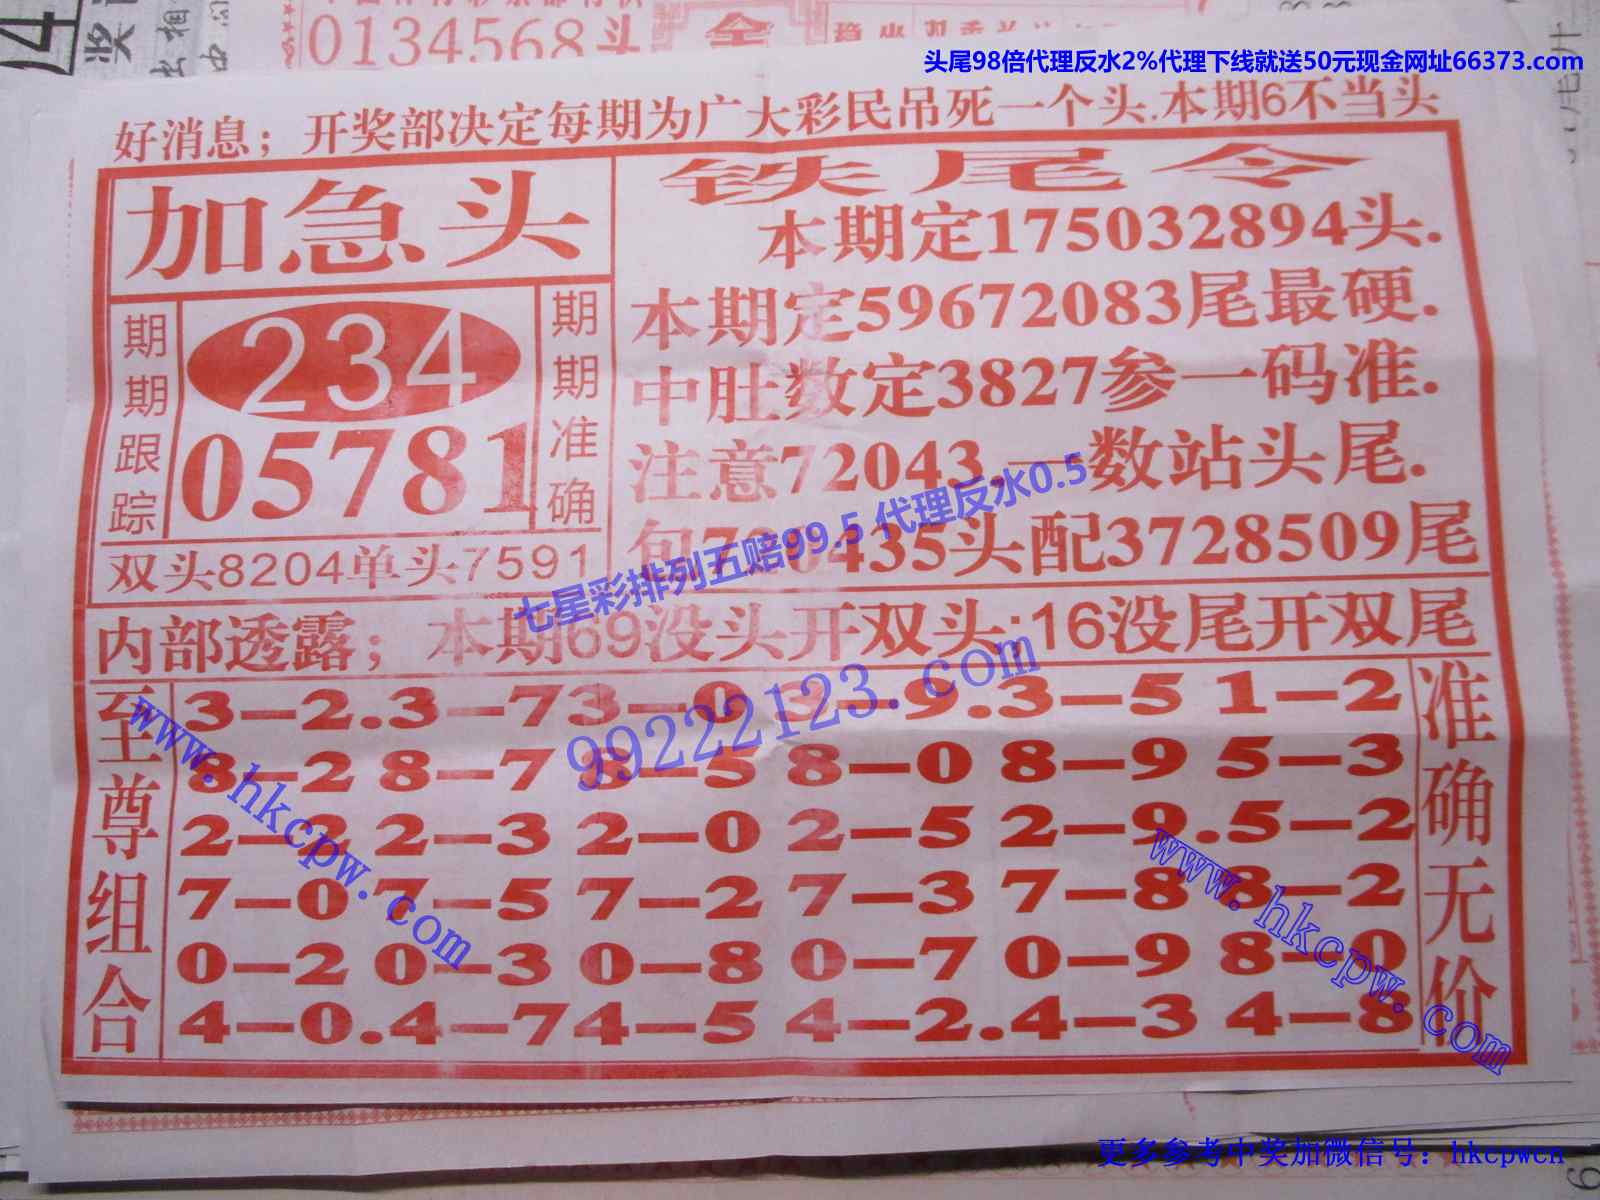 0134568头
头尾98倍代理反水2%代理下线就送50元现金网址66373.com
好消息；开奖部决定每期为广大彩民吊死一个头.本期6不当头
加急头
期期跟踪
234
05781
期期准确
双头8204单头7591
铁尾令
本期定175032894头.
本期定59672083尾最硬.
中肚数定3827参一码准.
注意72043.一数站头尾.
435头配3728509尾
七星彩排列五赔99.5 代理反水0.5
内部透露；本期69没头开双头;16没尾开双尾
99222123.com
至尊组合
3–2.3–7 3–0 3–9.3–5 1–2
8–2 8–7 8–5 8–0 8–9 5–3
2–3 2–0 2–5 2–9.5–2
7–0 7–5 7–2 7–3 7–8 8–2
0–2 0–3 0–8 0–7 0–9 8–0
4–0.4–7 4–5 4–2.4–3 4–8
准确无价
www.hkcpw.com
www.hkcpw.com
更多参考中奖加微信号：hkcpwcn